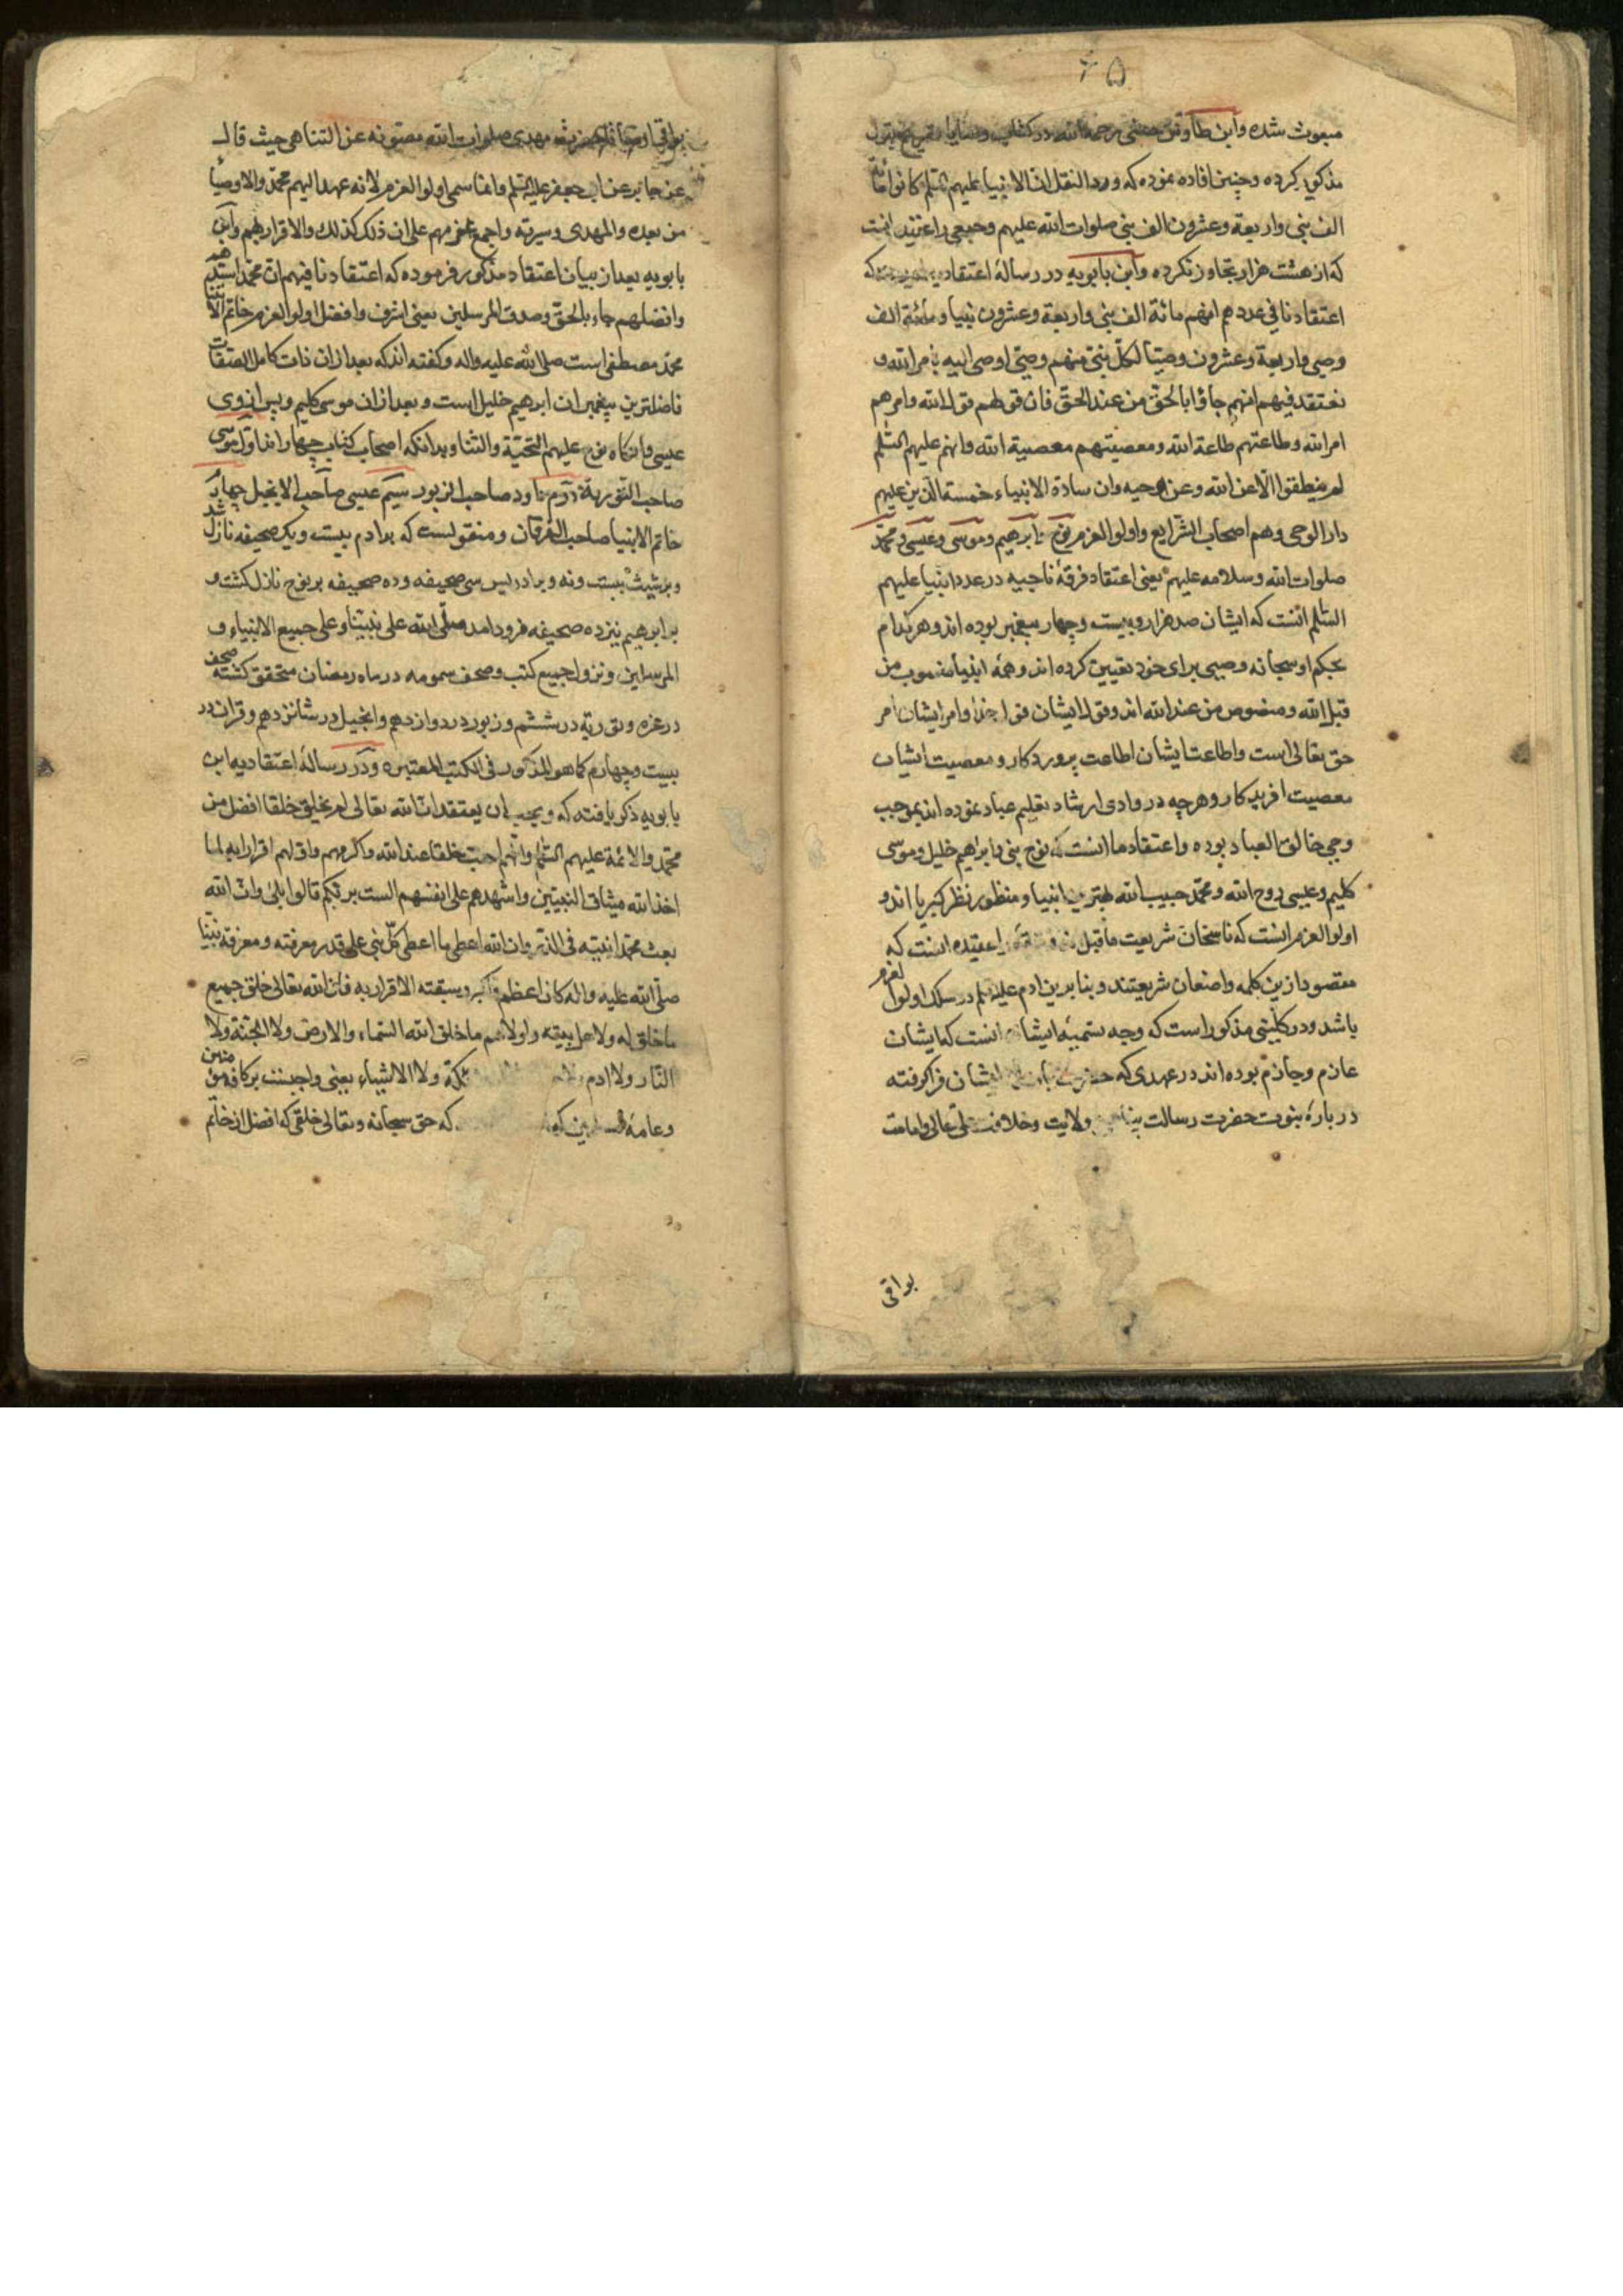 ۶۵
مبعوث شده وابن طاوس حسنی رحمه الله در کتاب
مذکور کرده وچنین افاده نموده که ورد النقل ان الانبیاء علیهم السلم کانوا مائة
الف نبی واربعة وعشرون الف نبی صلوات الله علیهم وجمعی را عقیده انست
که از هشت هزار تجاوز نکرده وابن بابویه در رسالهٔ اعتقادیه که
اعتقادنا فی عددهم انهم مائة الف نبی واربعة وعشرون نبیا ومائة الف
وصی واربعة وعشرون وصیا لکل نبی منهم وصی اوصی الیه بامر الله و
نعتقد فیهم انهم جاؤا بالحق من عند الحق فان قولهم قول الله وامرهم
امر الله وطاعتهم طاعة الله ومعصیتهم معصیة الله وانهم علیهم السلم
لم ینطقوا الا عن الله وعن وحیه وان سادة الانبیاء خمسة الذین علیهم
دار الوحی وهم اصحاب الشرایع واولوا العزم نوح وابرهیم وموسی وعیسی ومحمد
صلوات الله وسلامه علیهم یعنی اعتقاد فرقهٔ ناجیه در عدد انبیا علیهم
السلم انست که ایشان صد هزار وبیست وچهار پیغمبر بوده اند وهر کدام
بحکم او سبحانه وصیی برای خود تعیین کرده اند وهمه انبیا منصوب من
قبل الله ومنصوص من عند الله اند وقول ایشان قول خدا وامر ایشان امر
حق تعالی است واطاعت ایشان اطاعت پروردکار ومعصیت ایشان
معصیت افریدکار وهرچه در وادی ارشاد تعلیم عباد نموده اند بموجب
وحی خالق العباد بوده واعتقاد ما انست که نوح نبی وابراهیم خلیل وموسی
کلیم وعیسی روح الله ومحمد حبیب الله بهترین انبیا ومنظور نظر کبریا اند و
اولوا العزم انست که ناسخان شریعت ما قبل اعتقیده انست که
مقصود ازین کلمه واضعان شریعتند وبنا برین ادم علیه السلم در سلک اولوا العزم
باشد ودر کلینی مذکور است که وجه تسمیهٔ ایشان انست که ایشان
عازم وجازم بوده اند در عهدی که حضرت ایشان فرا کرفته
در بارهٔ نبوت حضرت رسالت پناهی ولایت وخلافت وامامت
بواقی
بواقی اوصیا تا حضرت مهدی صلوات الله مصونه عن التناهی حیث قال
عن جابر عن ابی جعفر علیه السلم وانما سمی اولوا العزم لانه عهد الیهم محمد والاوصیا
من بعده والمهدی وسیرته واجمع عزمهم علی ان ذلک کذلک والاقرار بهم وابن
بابویه بعد از بیان اعتقاد مذکور فرموده که اعتقادنا فیهم ان محمدا سیدهم
وافضلهم جاء بالحق وصدق المرسلین یعنی اشرف وافضل اولوا العزم خاتم الانبیا
محمد مصطفی است صلی الله علیه واله وکفته اند که بعد از ان ذات کامل الصفات
فاضلترین پیغمبران ابرهیم خلیل است وبعد از ان موسی کلیم وپس از وی
عیسی وانکاه نوح علیهم التحیة والثنا وبدانکه اصحاب کتاب چهار اند اول موسی
صاحب التوریة دوم داود صاحب الزبور سیم عیسی صاحب الانجیل چهارم
خاتم الانبیا صاحب الفرقان ومنقولست که بر ادم بیست ویک صحیفه نازل شد
وبر شیث بیست ونه وبر ادریس سی صحیفه وده صحیفه بر نوح نازل کشت و
بر ابرهیم نیز ده صحیفه فرود امد صلی الله علی نبینا وعلی جمیع الانبیاء و
المرسلین ونزول جمیع کتب وصحف سمویه در ماه رمضان متحقق کشته صحف
در غره وتوریة در ششم وزبور در دوازدهم وانجیل در شانزدهم وقران در
بیست وچهارم کما هو المذکور فی الکتب المعتبره ودر رسالهٔ اعتقادیه ابن
بابویه ذکر یافته که ویجب ان یعتقد ان الله تعالی لم یخلق خلقا افضل من
محمد والائمة علیهم السلم وانهم احب خلقا عند الله واکرمهم واولهم اقرارا به لما
اخذ الله میثاق النبیین واشهدهم علی انفسهم الست بربکم قالوا بلی وان الله
بعث محمدا نبیه فی الذر وان الله اعطی ما اعطی کل نبی علی قدر معرفته ومعرفة نبینا
صلی الله علیه واله کان اعظم واکبر وسبقته الاقرار به فان الله تعالی خلق جمیع
ما خلق له ولاهل بیته ولولاهم ما خلق الله السماء والارض ولا الجنة ولا
النار ولا ادم ولا ولا الاشیاء یعنی واجبست بر کافه مؤمنین
وعامهٔ که حق سبحانه وتعالی خلقی که افضل از خاتم